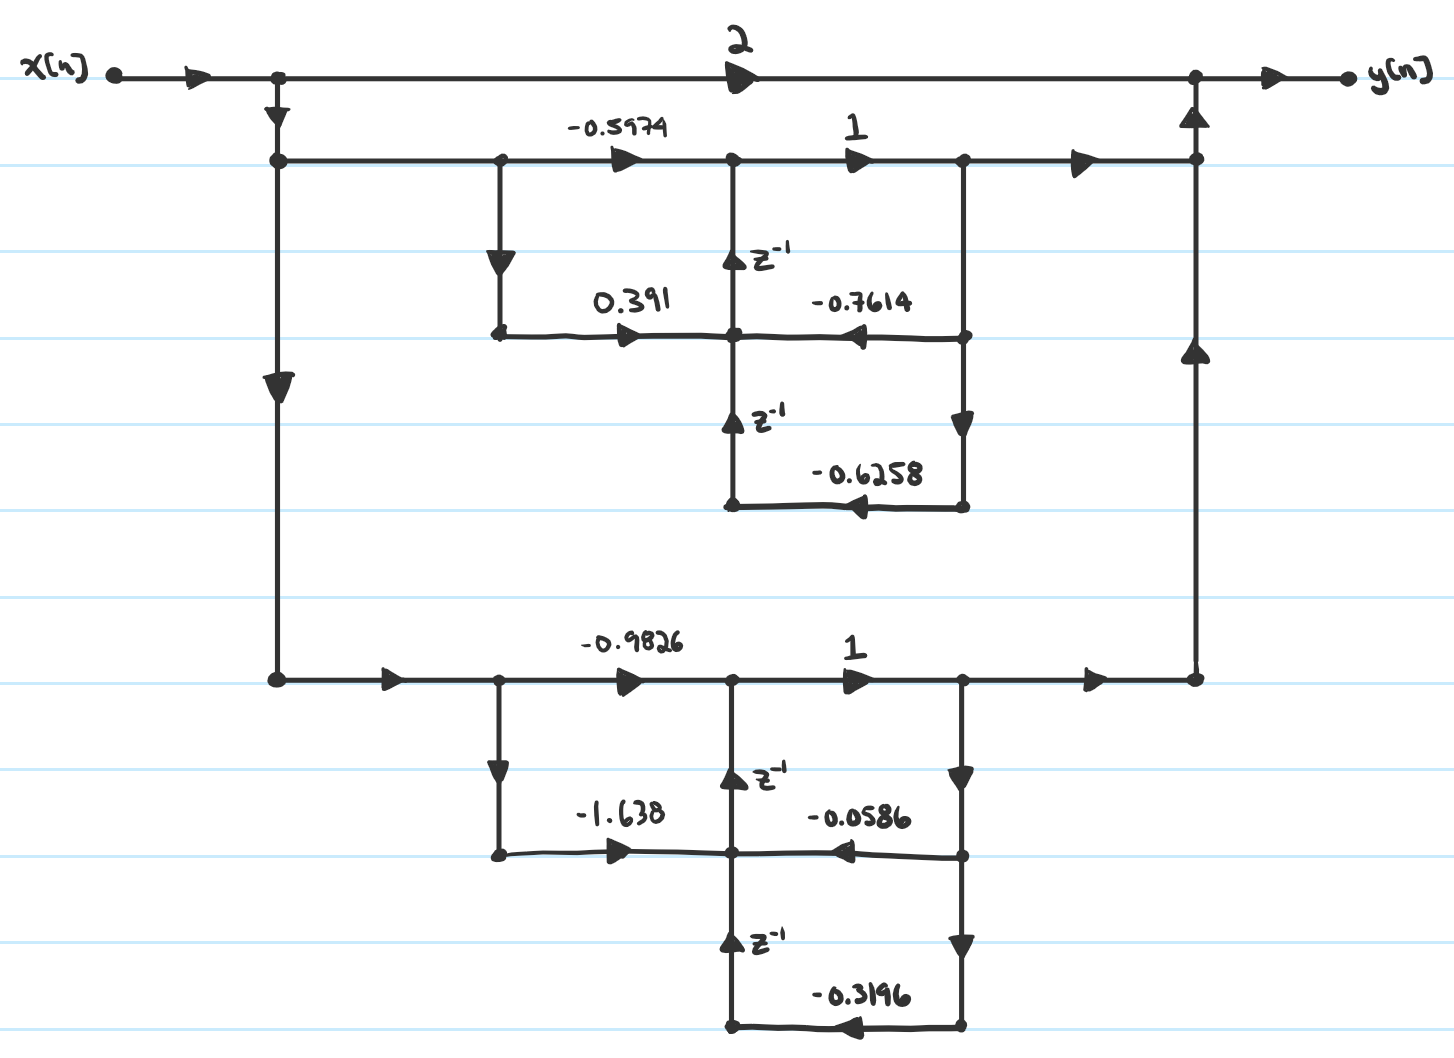 2
x[n] y[n]
-0.5974 1
z⁻¹
0.391 -0.7614
z⁻¹
-0.6258
-0.9826 1
z⁻¹
-1.638 -0.0586
z⁻¹
-0.3196